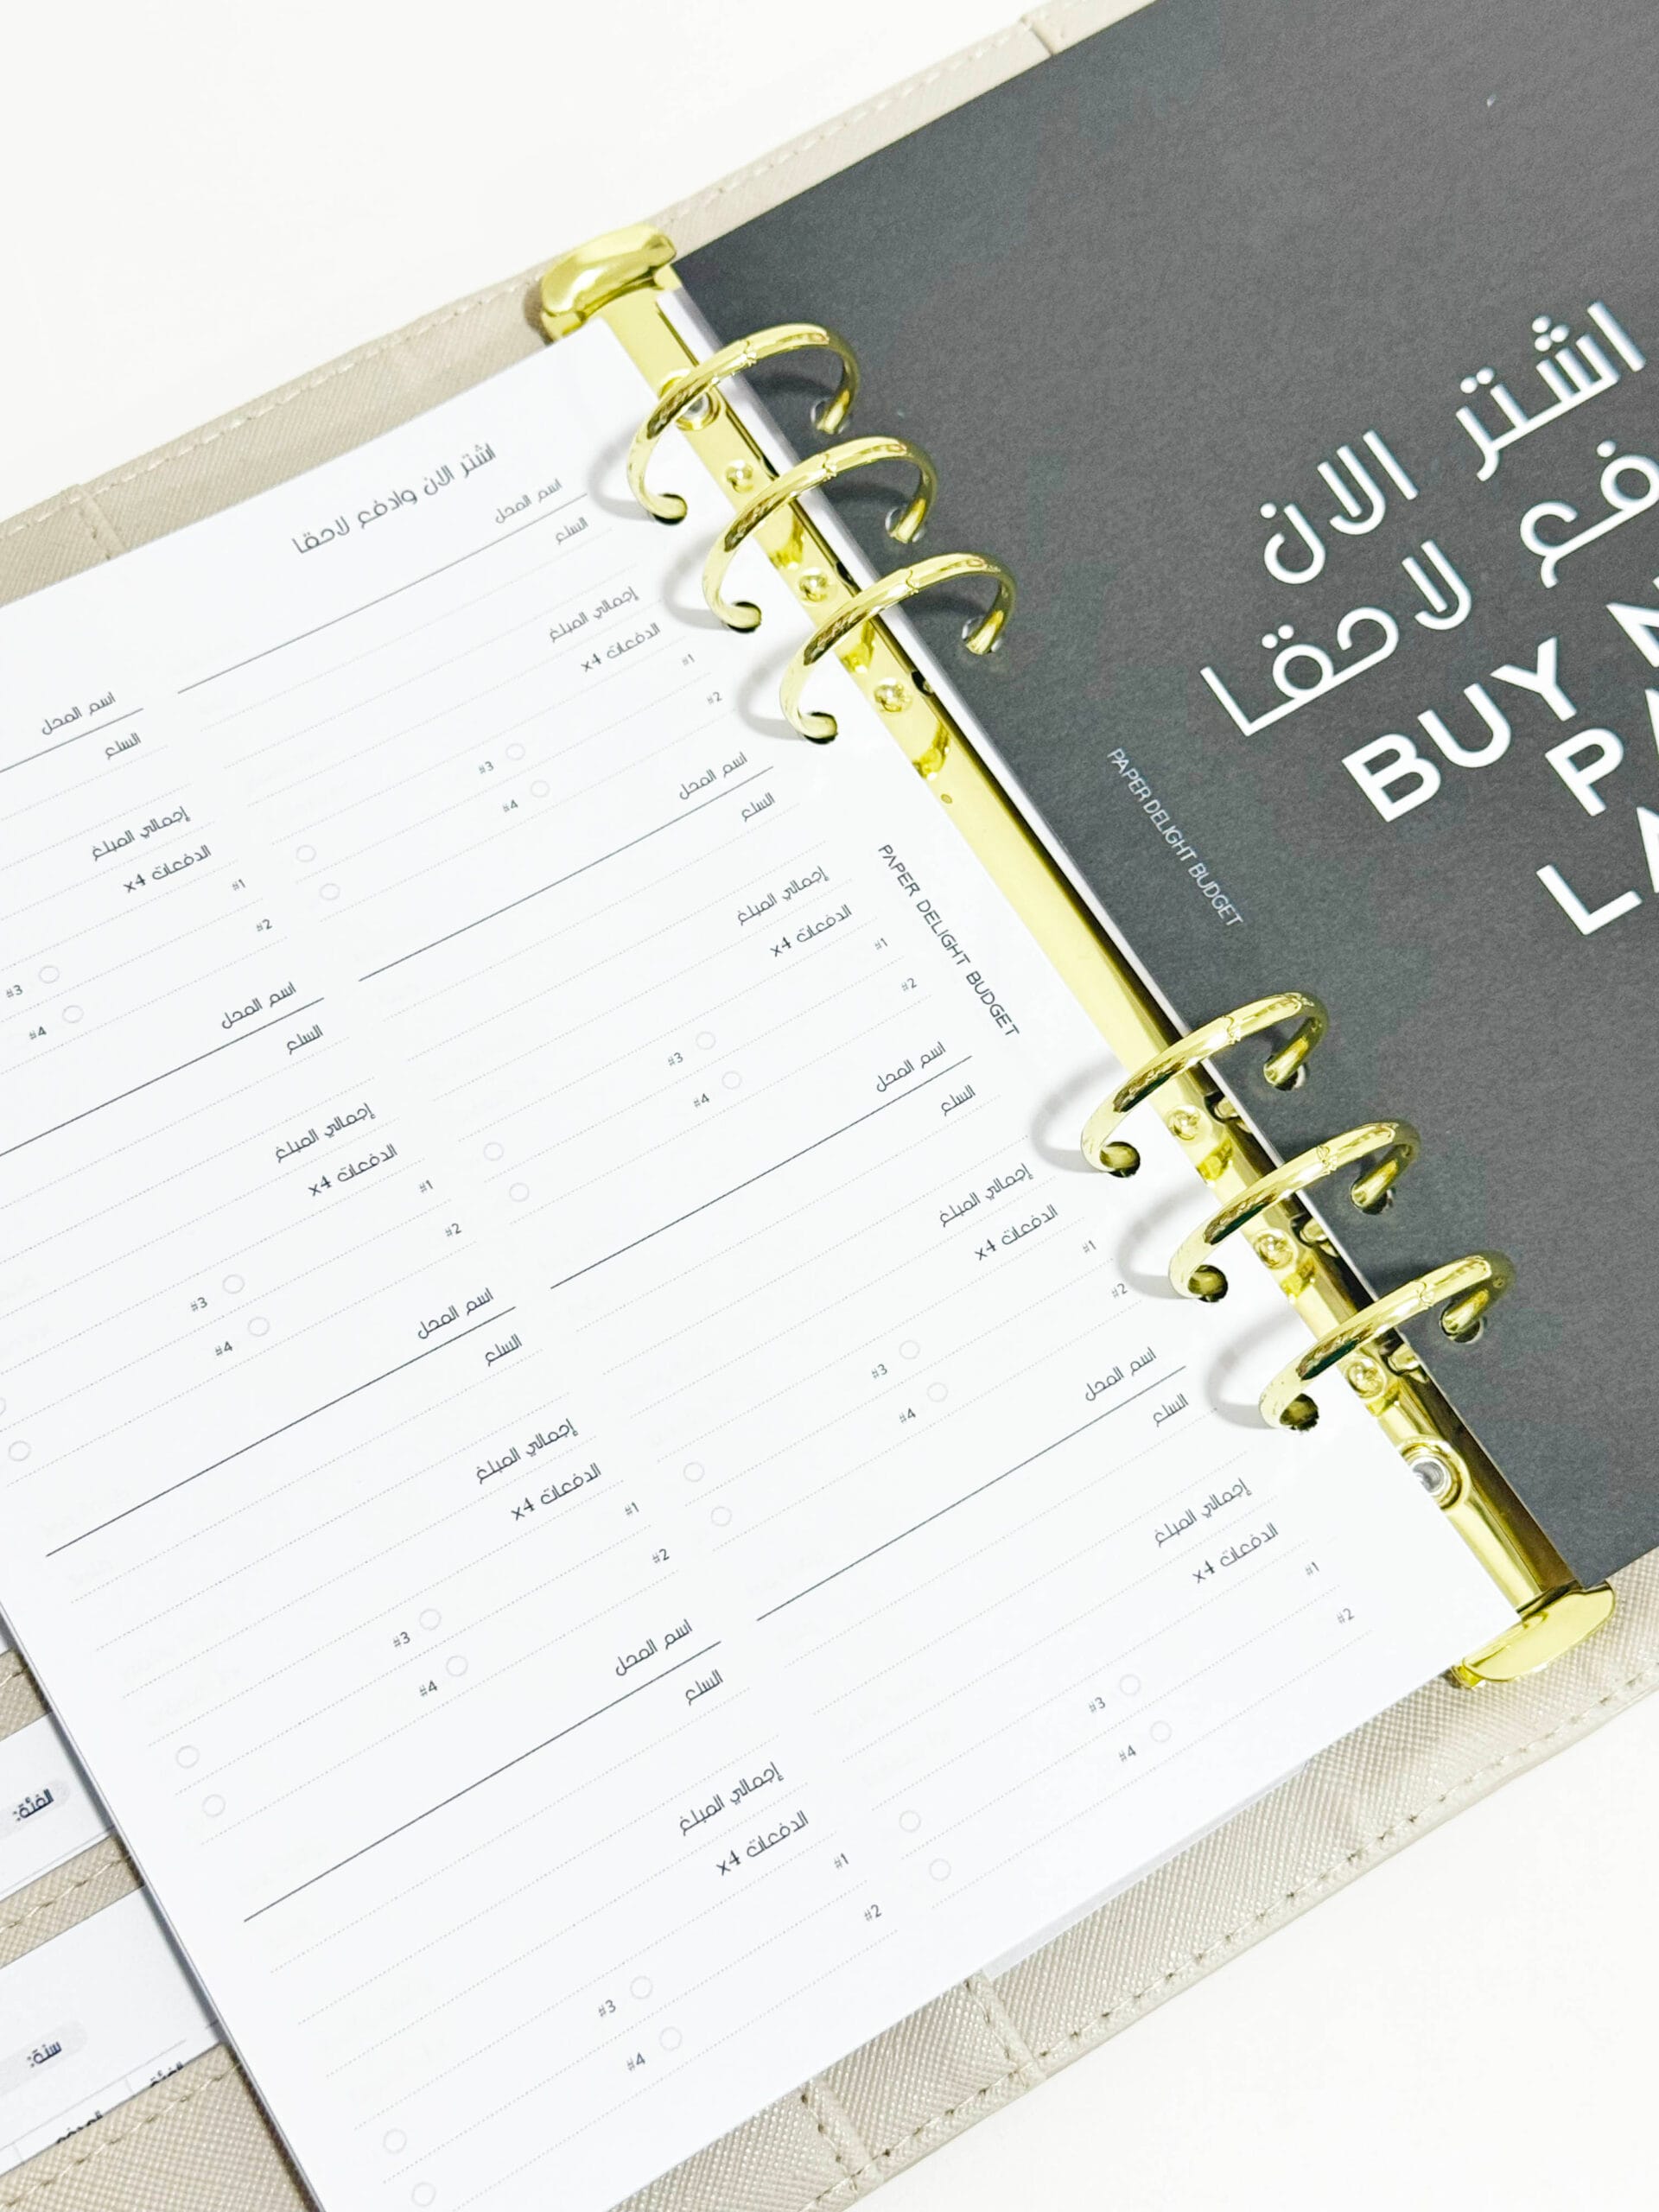 اشتر الان وادفع لاحقا
اسم المحل
السلع
إجمالي المبلغ
الدفعات 4x
#1
#2
#3
#4
اسم المحل
السلع
إجمالي المبلغ
الدفعات 4x
#1
#2
#3
#4
اسم المحل
السلع
إجمالي المبلغ
الدفعات 4x
#1
#2
#3
#4
اسم المحل
السلع
إجمالي المبلغ
الدفعات 4x
#1
#2
#3
#4
اسم المحل
السلع
إجمالي المبلغ
الدفعات 4x
#1
#2
#3
#4
اسم المحل
السلع
إجمالي المبلغ
الدفعات 4x
#1
#2
#3
#4
اسم المحل
السلع
إجمالي المبلغ
الدفعات 4x
#1
#2
#3
#4
اسم المحل
السلع
إجمالي المبلغ
الدفعات 4x
#1
#2
#3
#4
PAPER DELIGHT BUDGET
PAPER DELIGHT BUDGET
اشتر الان
لاحقا
BUY
الفئة:
سنة: